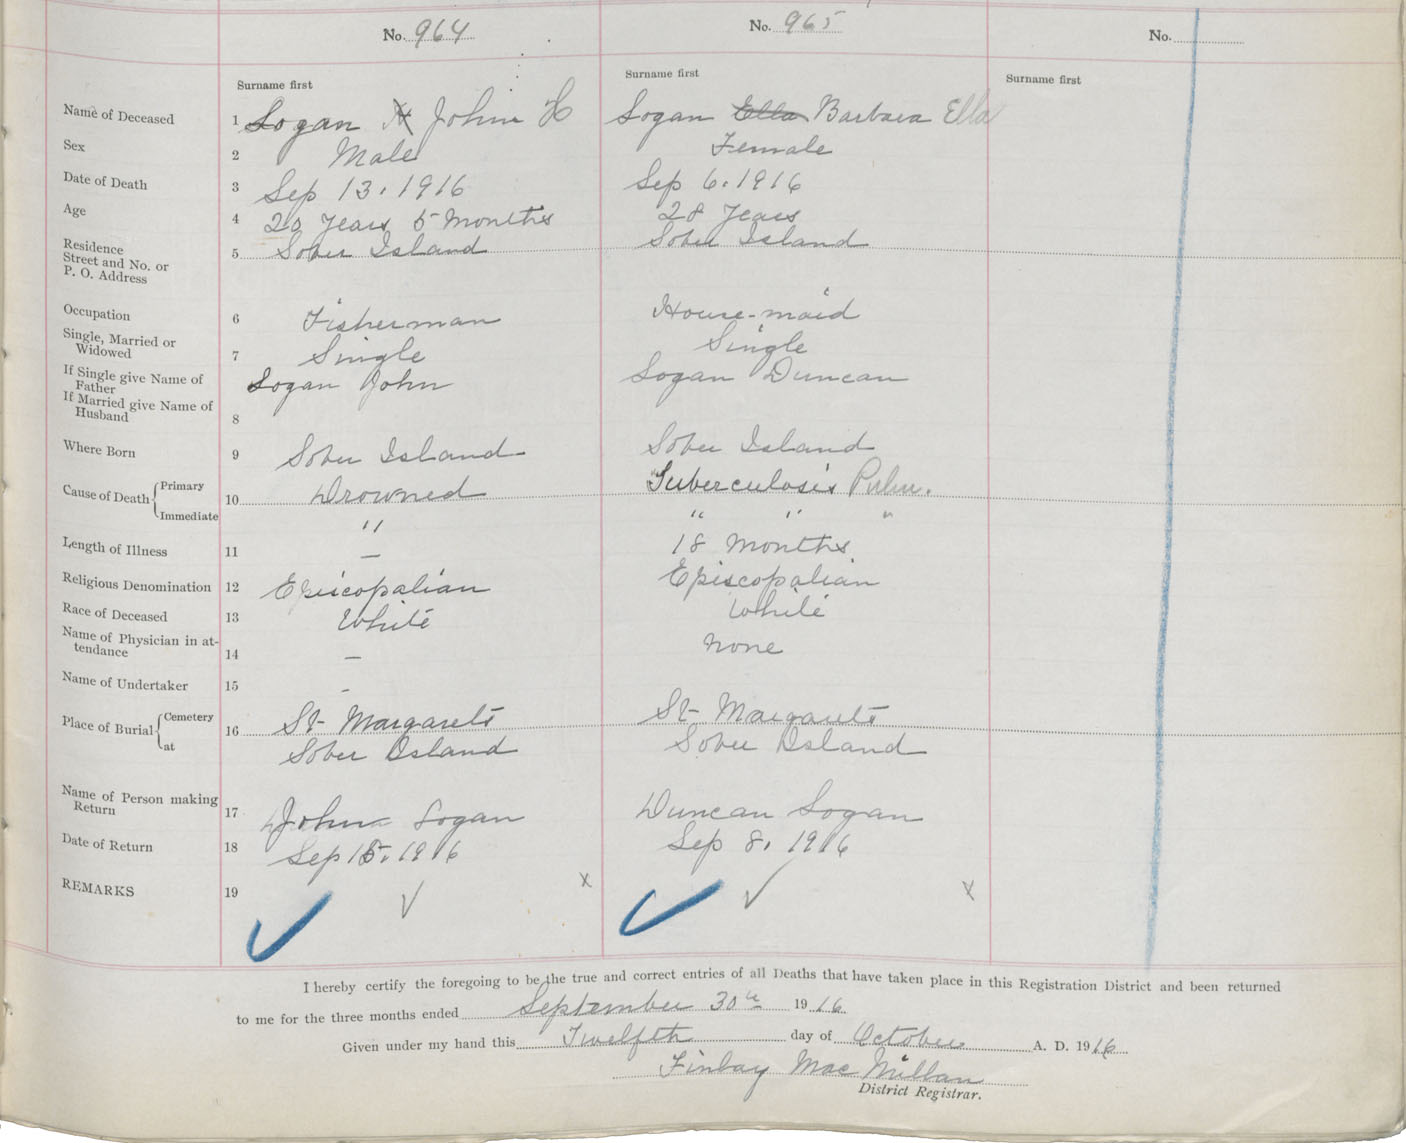 No. 964 No. 965 No.
Surname first Surname first Surname first
Name of Deceased 1 Logan H John H Logan Ella Barbara Ella
Sex 2 Male Female
Date of Death 3 Sep 13. 1916 Sep 6. 1916
Age 4 20 Years 5 Months 28 Years
Residence
Street and No. or
P. O. Address 5 Sober Island Sober Island
Occupation 6 Fisherman House-maid
Single, Married or
Widowed 7 Single Single
If Single give Name of
Father Logan John Logan Duncan
If Married give Name of
Husband 8
Where Born 9 Sober Island Sober Island
Cause of Death { Primary 10 Drowned Tuberculosis Pulm.
Immediate " " " "
Length of Illness 11 — 18 Months
Religious Denomination 12 Episcopalian Episcopalian
Race of Deceased 13 White White
Name of Physician in at-
tendance 14 — None
Name of Undertaker 15 -
Place of Burial { Cemetery 16 St Margarets St Margarets
at Sober Island Sober Island
Name of Person making
Return 17 John Logan Duncan Logan
Date of Return 18 Sep 15. 1916 Sep 8. 1916
REMARKS 19 ✓ ✓ x ✓ ✓ x
I hereby certify the foregoing to be the true and correct entries of all Deaths that have taken place in this Registration District and been returned
to me for the three months ended September 30th 1916
Given under my hand this Twelfth day of October A. D. 1916
Finlay Mac Millan
District Registrar.